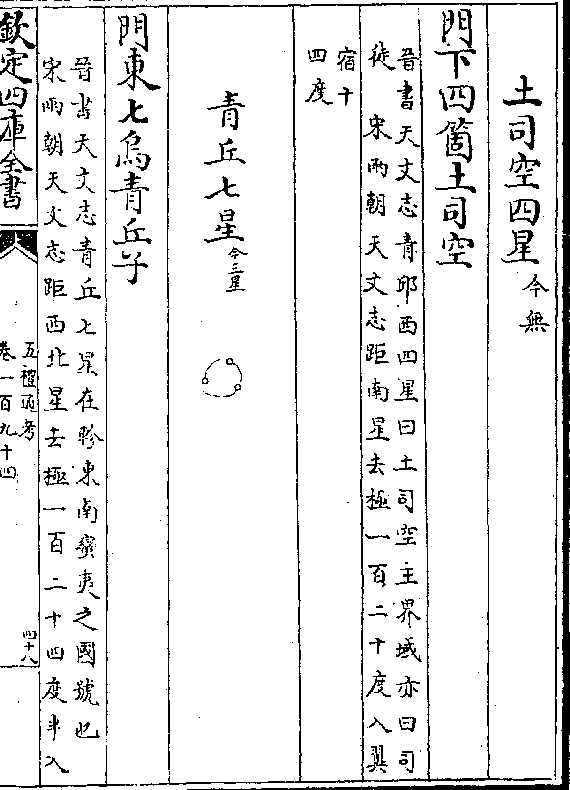 土司空四星今無
門下四箇土司空
晉書天文志青邱西四星曰土司空主界域亦曰司
徒 宋兩朝天文志距南星去極一百二十度入翼
宿十
四度
青丘七星今三星
門東七烏青丘子
晉書天文志青丘七星在軫東南蠻夷之國號也
宋兩朝天文志距西北星去極一百二十四度半入
欽定四庫全書
五禮通考
卷一百九十四
四十八